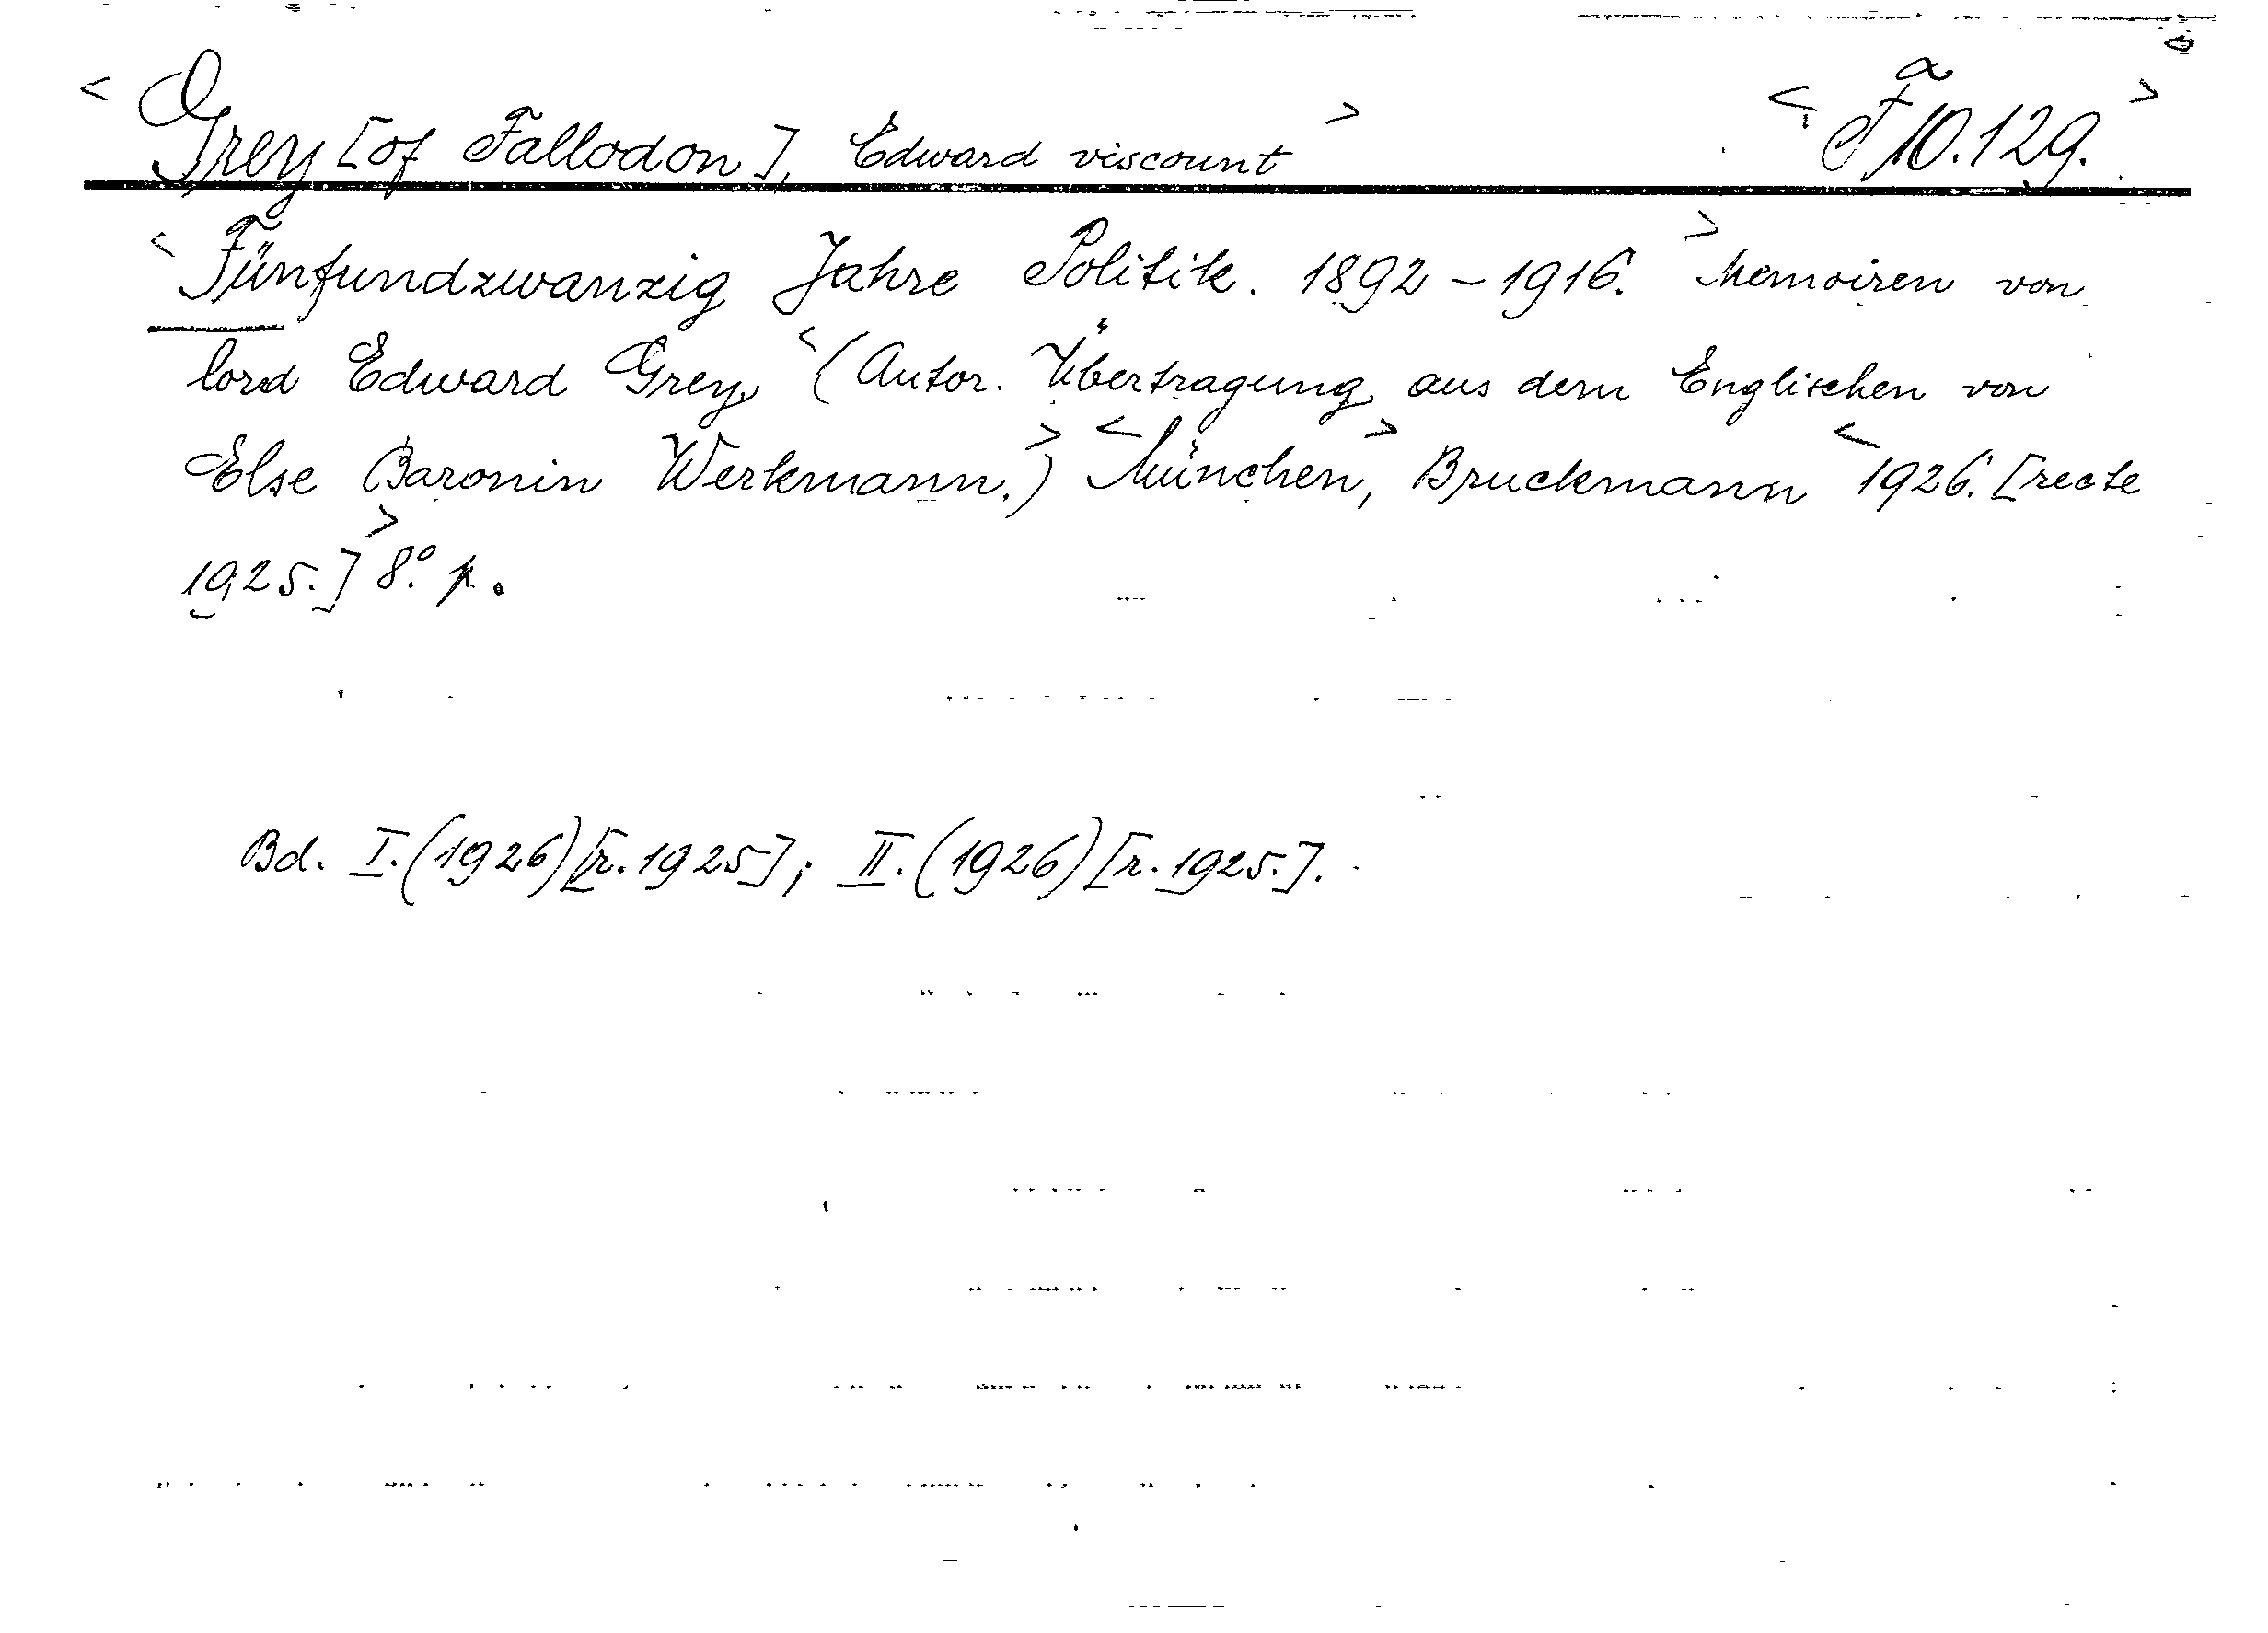 < Grey [of Fallodon], Edward viscount > < F 10.129. >
< Fünfundzwanzig Jahre Politik. 1892-1916. > Memoiren von
lord Edward Grey. < (Autor. Übertragung aus dem Englischen von
Else Baronin Werkmann.) > < München, > Bruckmann < 1926. [recte
1925.] > 8.° p.
Bd. I. (1926) [r. 1925]; II. (1926) [r. 1925.].